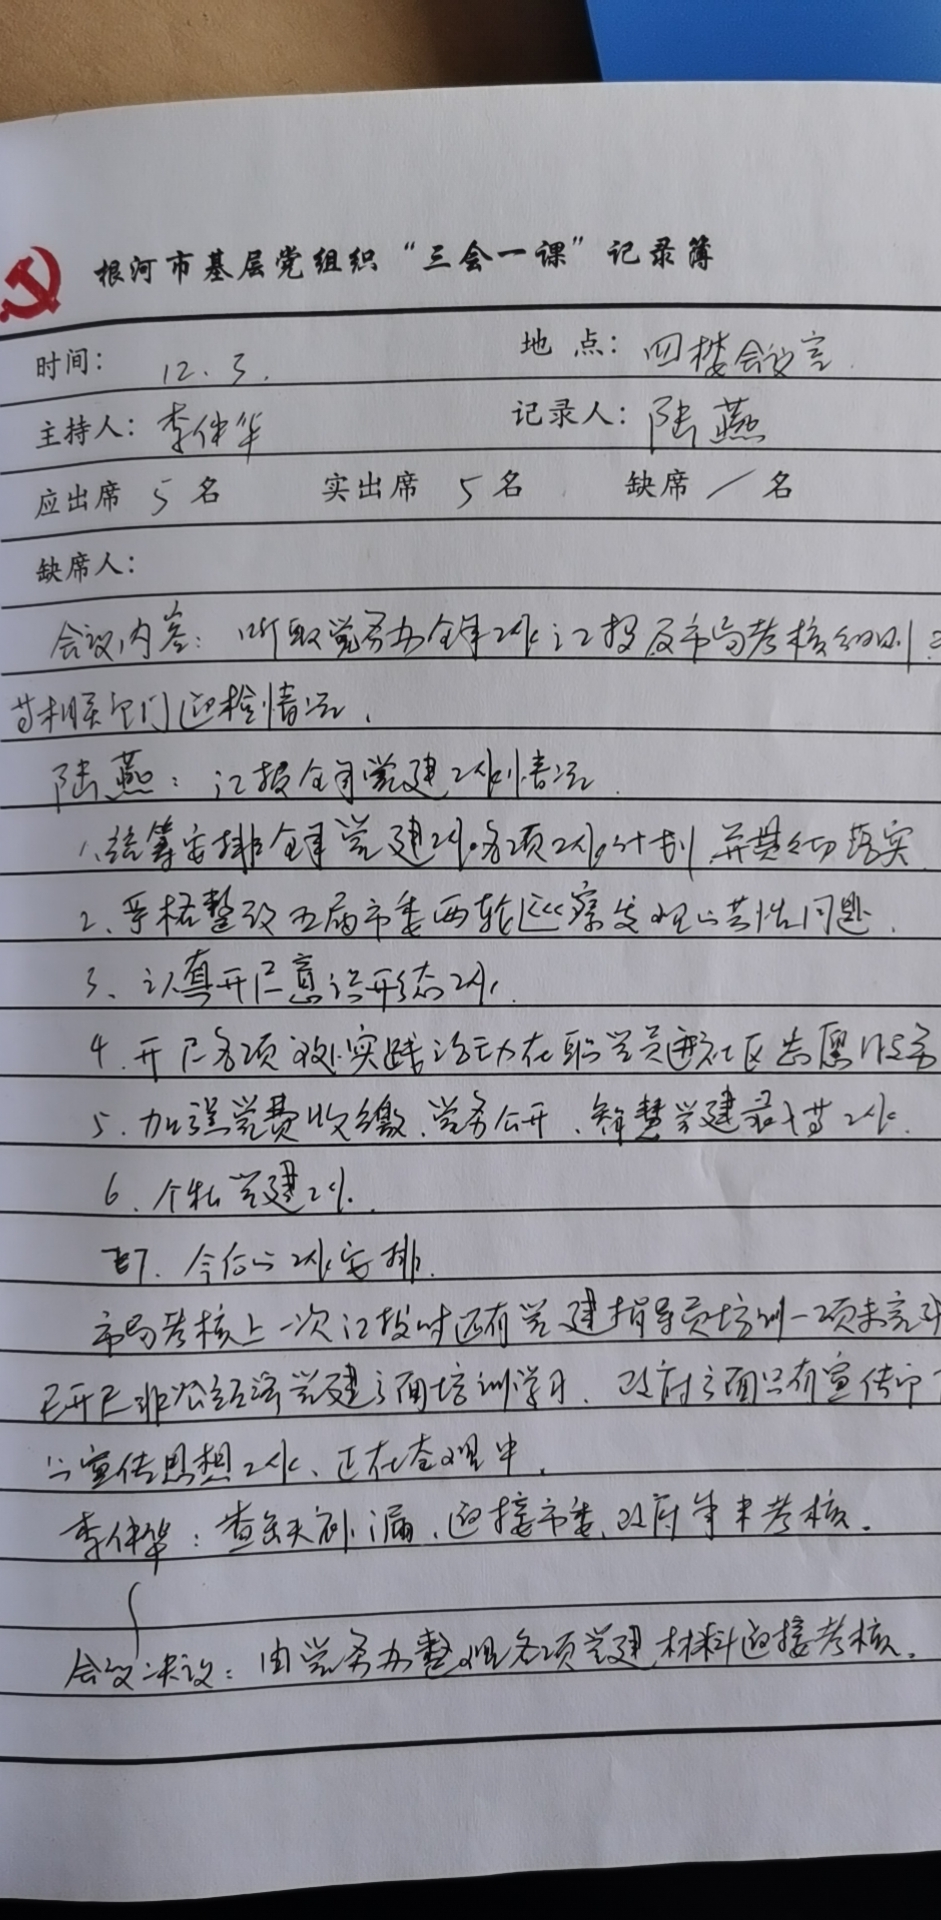 根河市基层党组织“三会一课”记录簿
时间： 12.3. 地点： 四楼会议室
主持人： 李伟华 记录人： 陆燕
应出席 5 名 实出席 5 名 缺席 / 名
缺席人：
会议内容：听取党务办全年工作汇报及市局考核细则
相关部门迎检情况.
陆燕：汇报全年党建工作情况.
1、统筹安排全年党建工作各项工作计划,并真切落实
2、严格整改五届市委两轮巡察发现的共性问题.
3、认真开展意识形态工作.
4.开展各项 实践活动在职党员进社区志愿服务
5.加强党费收缴、党务公开、智慧党建录 工作.
6、个私党建工作.
7.今后的工作安排.
市局考核上一次汇报时还有党建指导员培训一项未完成
已开展非公经济党建方面培训学习.政府方面只有宣传部
的宣传思想工作、正在整理中.
李伟华：查缺补漏、迎接市委、政府年末考核.
会议决议：由党务办整理各项党建材料迎接考核.